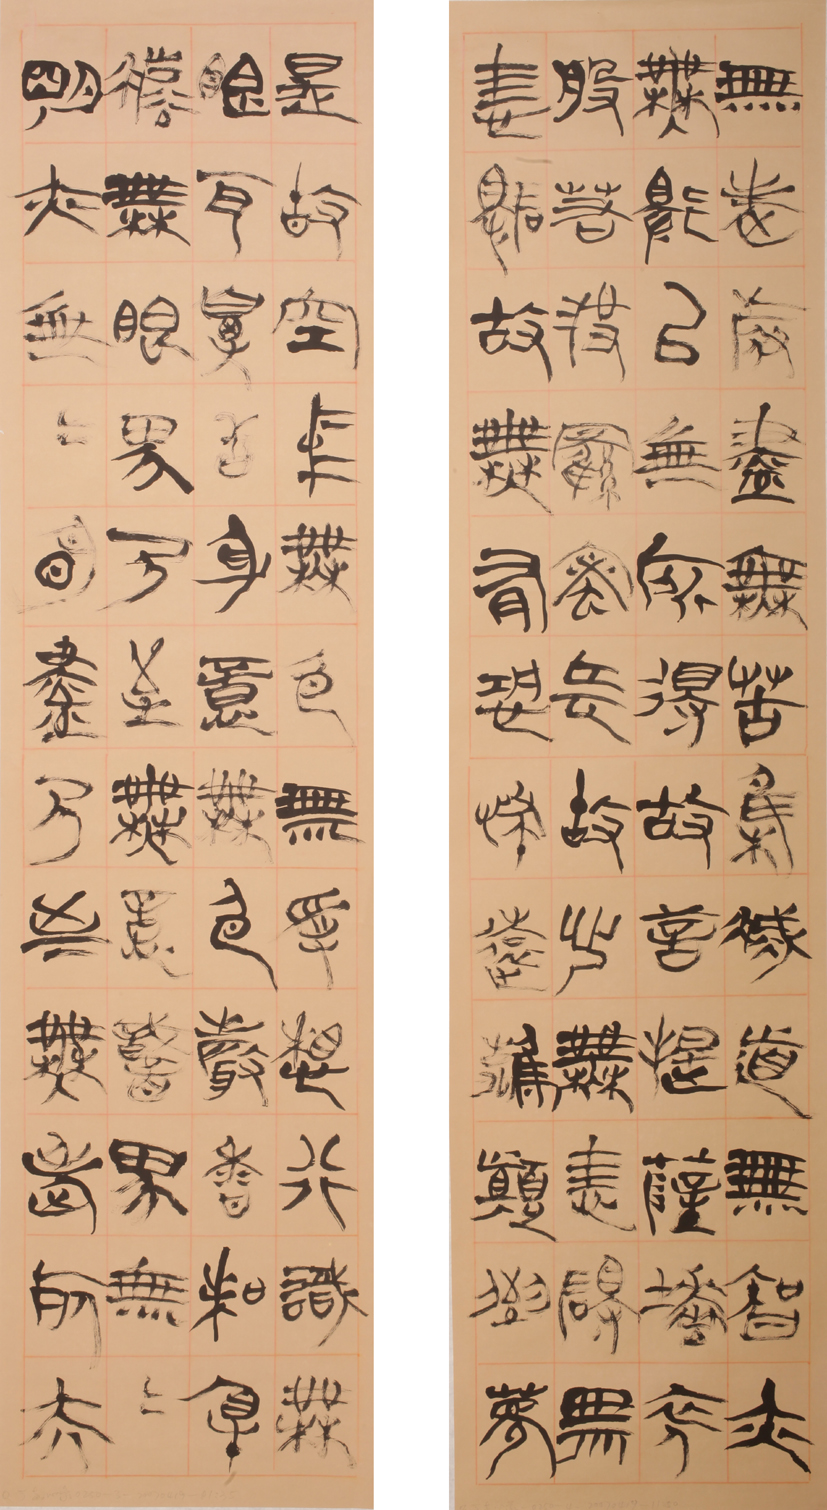 是故空中無色無受想行識無
眼耳鼻舌身意無色聲香味觸
法無眼界乃至無意識界無〻
明亦無〻明盡乃至無老死亦
無老死盡無苦集滅道無智亦
無得以無所得故菩提薩埵依
般若波羅蜜多故心無罣礙無
罣礙故無有恐怖遠離顛倒夢